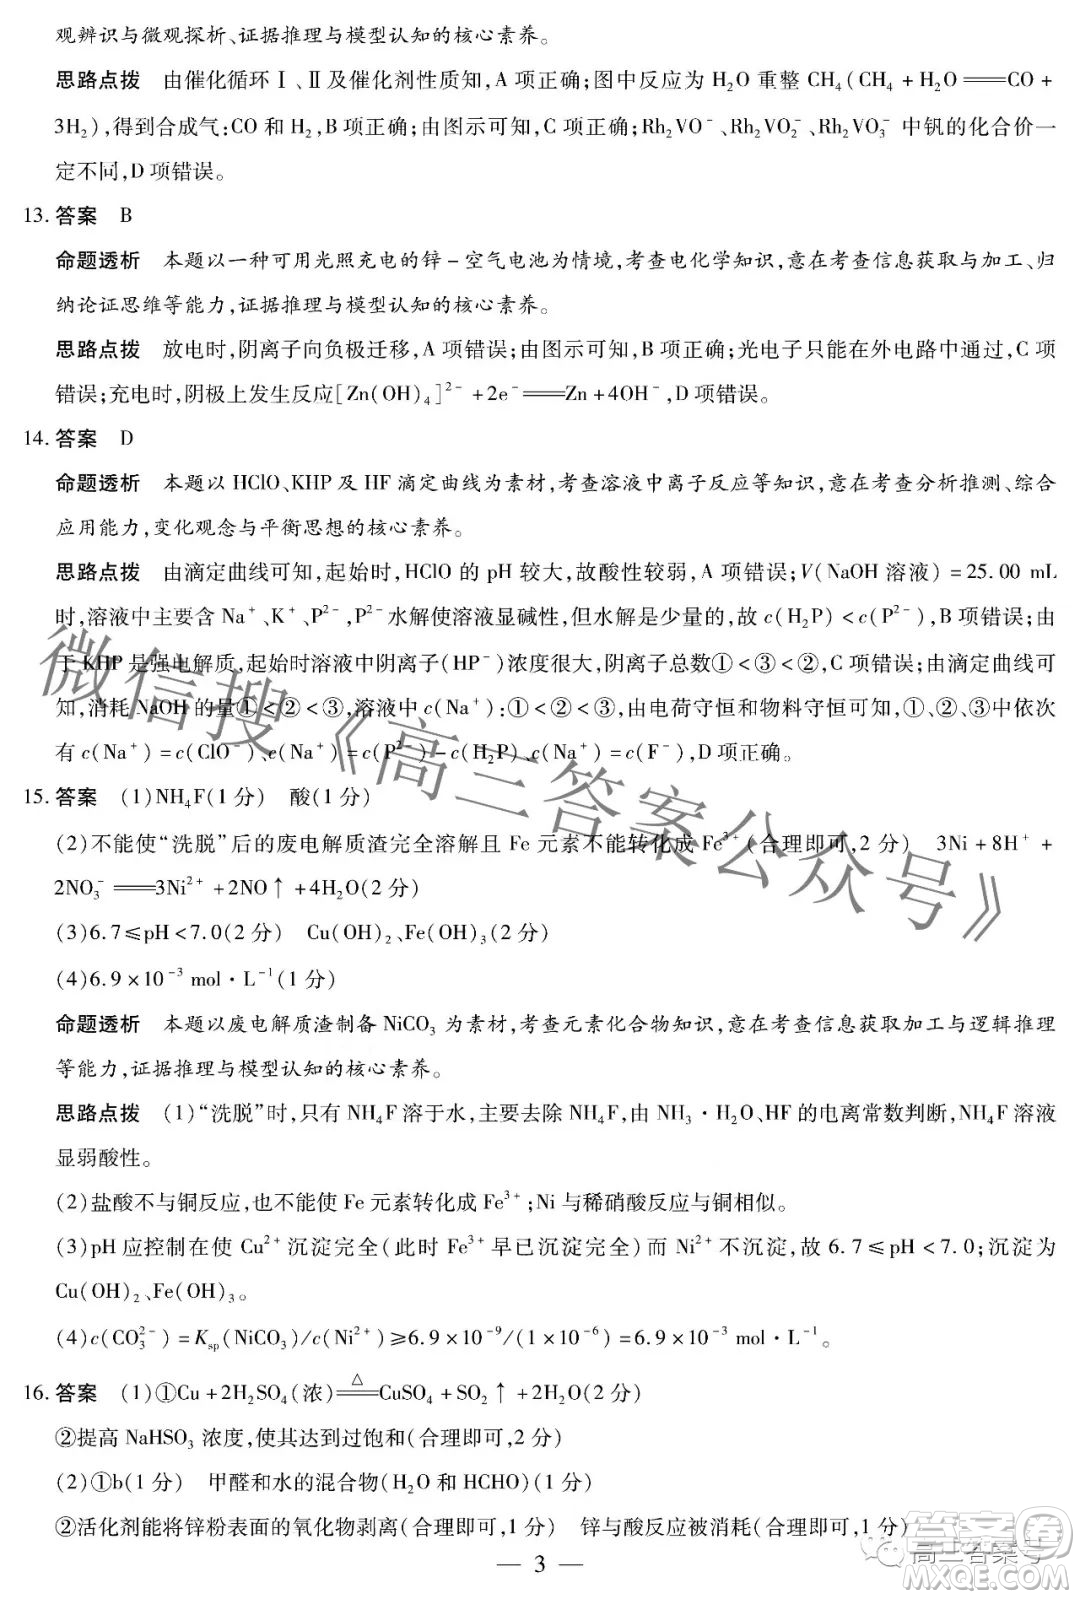 观辨识与微观探析、证据推理与模型认知的核心素养。
思路点拨 由催化循环Ⅰ、Ⅱ及催化剂性质知,A 项正确;图中反应为 H₂O 重整 CH₄(CH₄+H₂O══CO+
3H₂),得到合成气:CO 和 H₂,B 项正确;由图示可知,C 项正确;Rh₂VO⁻、Rh₂VO₂⁻、Rh₂VO₃⁻ 中钒的化合价一
定不同,D 项错误。
13. 答案 B
命题透析 本题以一种可用光照充电的锌-空气电池为情境,考查电化学知识,意在考查信息获取与加工、归
纳论证思维等能力,证据推理与模型认知的核心素养。
思路点拨 放电时,阴离子向负极迁移,A 项错误;由图示可知,B 项正确;光电子只能在外电路中通过,C 项
错误;充电时,阴极上发生反应[Zn(OH)₄]²⁻+2e⁻══Zn+4OH⁻,D 项错误。
14. 答案 D
命题透析 本题以 HClO、KHP 及 HF 滴定曲线为素材,考查溶液中离子反应等知识,意在考查分析推测、综合
应用能力,变化观念与平衡思想的核心素养。
思路点拨 由滴定曲线可知,起始时,HClO 的 pH 较大,故酸性较弱,A 项错误;V(NaOH 溶液)=25.00 mL
时,溶液中主要含 Na⁺、K⁺、P²⁻,P²⁻水解使溶液显碱性,但水解是少量的,故 c(H₂P)<c(P²⁻),B 项错误;由
于 KHP 是强电解质,起始时溶液中阴离子(HP⁻)浓度很大,阴离子总数①<③<②,C 项错误;由滴定曲线可
知,消耗 NaOH 的量①<②<③,溶液中 c(Na⁺):①<②<③,由电荷守恒和物料守恒可知,①、②、③中依次
有 c(Na⁺)=c(ClO⁻)、c(Na⁺)=c(P²⁻)-c(H₂P)、c(Na⁺)=c(F⁻),D 项正确。
15. 答案 (1)NH₄F(1 分) 酸(1 分)
(2)不能使“洗脱”后的废电解质渣完全溶解且 Fe 元素不能转化成 Fe³⁺(合理即可,2 分) 3Ni+8H⁺+
2NO₃⁻══3Ni²⁺+2NO↑+4H₂O(2 分)
(3)6.7≤pH<7.0(2 分) Cu(OH)₂、Fe(OH)₃(2 分)
(4)6.9×10⁻³ mol·L⁻¹(1 分)
命题透析 本题以废电解质渣制备 NiCO₃ 为素材,考查元素化合物知识,意在考查信息获取加工与逻辑推理
等能力,证据推理与模型认知的核心素养。
思路点拨 (1)“洗脱”时,只有 NH₄F 溶于水,主要去除 NH₄F,由 NH₃·H₂O、HF 的电离常数判断,NH₄F 溶液
显弱酸性。
(2)盐酸不与铜反应,也不能使 Fe 元素转化成 Fe³⁺;Ni 与稀硝酸反应与铜相似。
(3)pH 应控制在使 Cu²⁺沉淀完全(此时 Fe³⁺早已沉淀完全)而 Ni²⁺不沉淀,故 6.7≤pH<7.0;沉淀为
Cu(OH)₂、Fe(OH)₃。
(4)c(CO₃²⁻)=Kₛₚ(NiCO₃)/c(Ni²⁺)≥6.9×10⁻⁹/(1×10⁻⁶)=6.9×10⁻³ mol·L⁻¹。
16. 答案 (1)①Cu+2H₂SO₄(浓)══△══CuSO₄+SO₂↑+2H₂O(2 分)
②提高 NaHSO₃ 浓度,使其达到过饱和(合理即可,2 分)
(2)①b(1 分) 甲醛和水的混合物(H₂O 和 HCHO)(1 分)
②活化剂能将锌粉表面的氧化物剥离(合理即可,1 分) 锌与酸反应被消耗(1 分)
— 3 —
微信搜《高三答案公众号》
高三答案号
答案圈
MXQE.COM